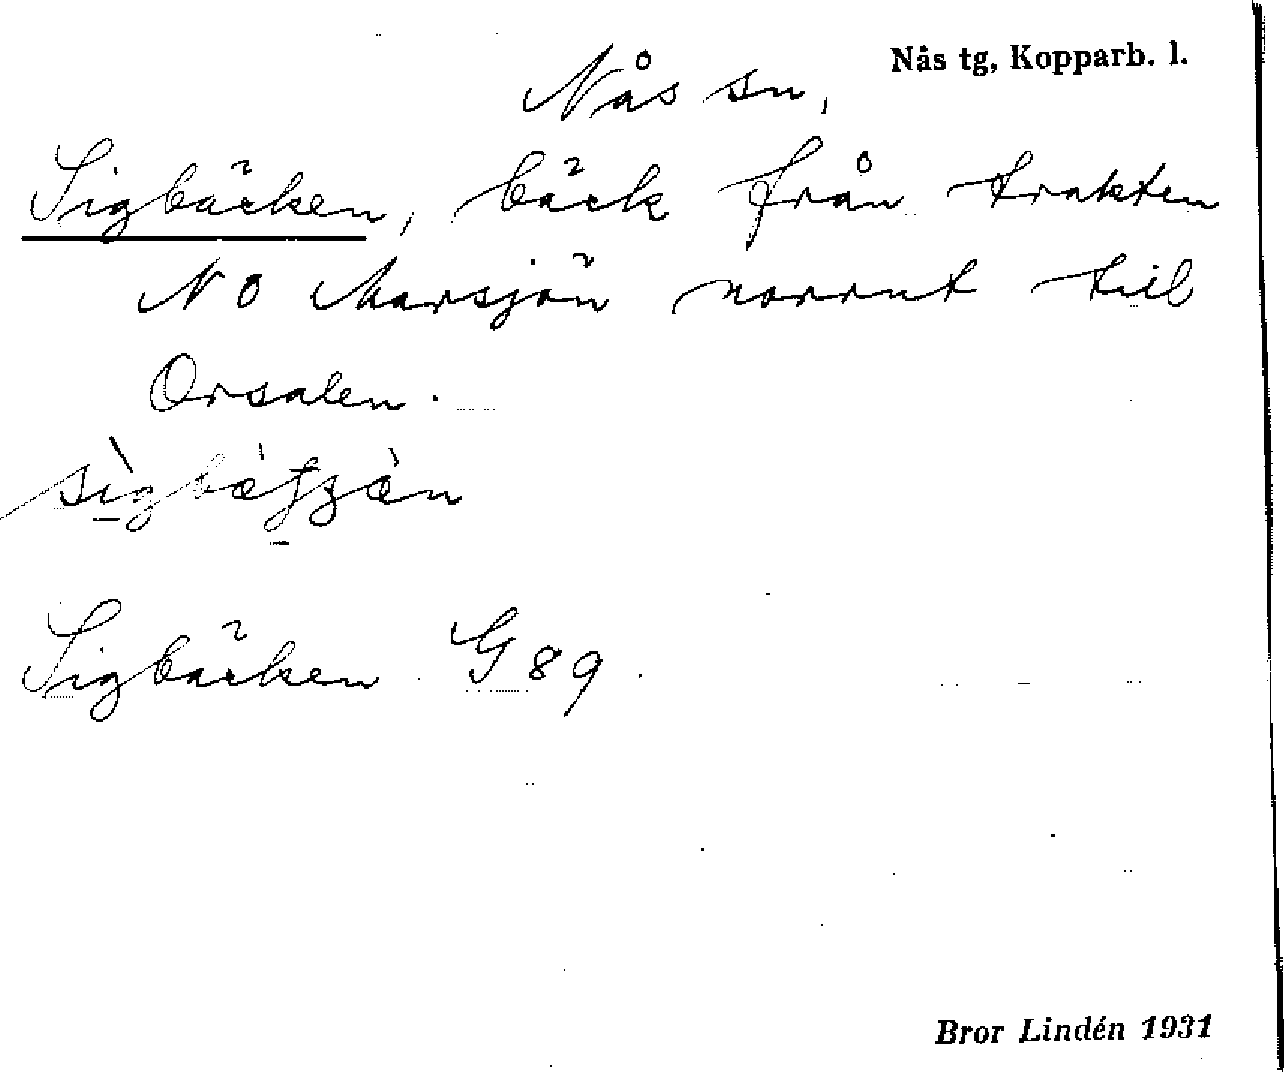 Nås tg, Kopparb. l.
Nås sn,
Sigbäcken, bäck från trakten
NO Marsjön norrut till
Orsalen.
Sigbäcken G 89.
Bror Lindén 1931